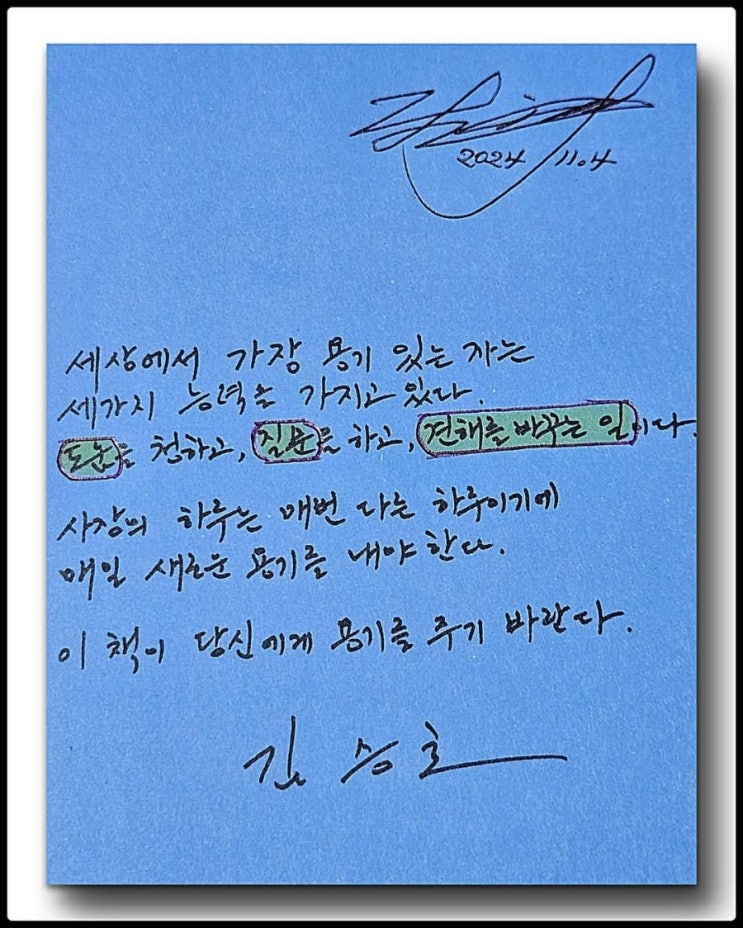 2024 11.4
세상에서 가장 용기 있는 자는
세가지 능력을 가지고 있다.
도움을 청하고, 질문을 하고, 견해를 바꾸는 일이다.
사장의 하루는 매번 다른 하루이기에
매일 새로운 용기를 내야 한다.
이 책이 당신에게 용기를 주기 바란다.
김승호